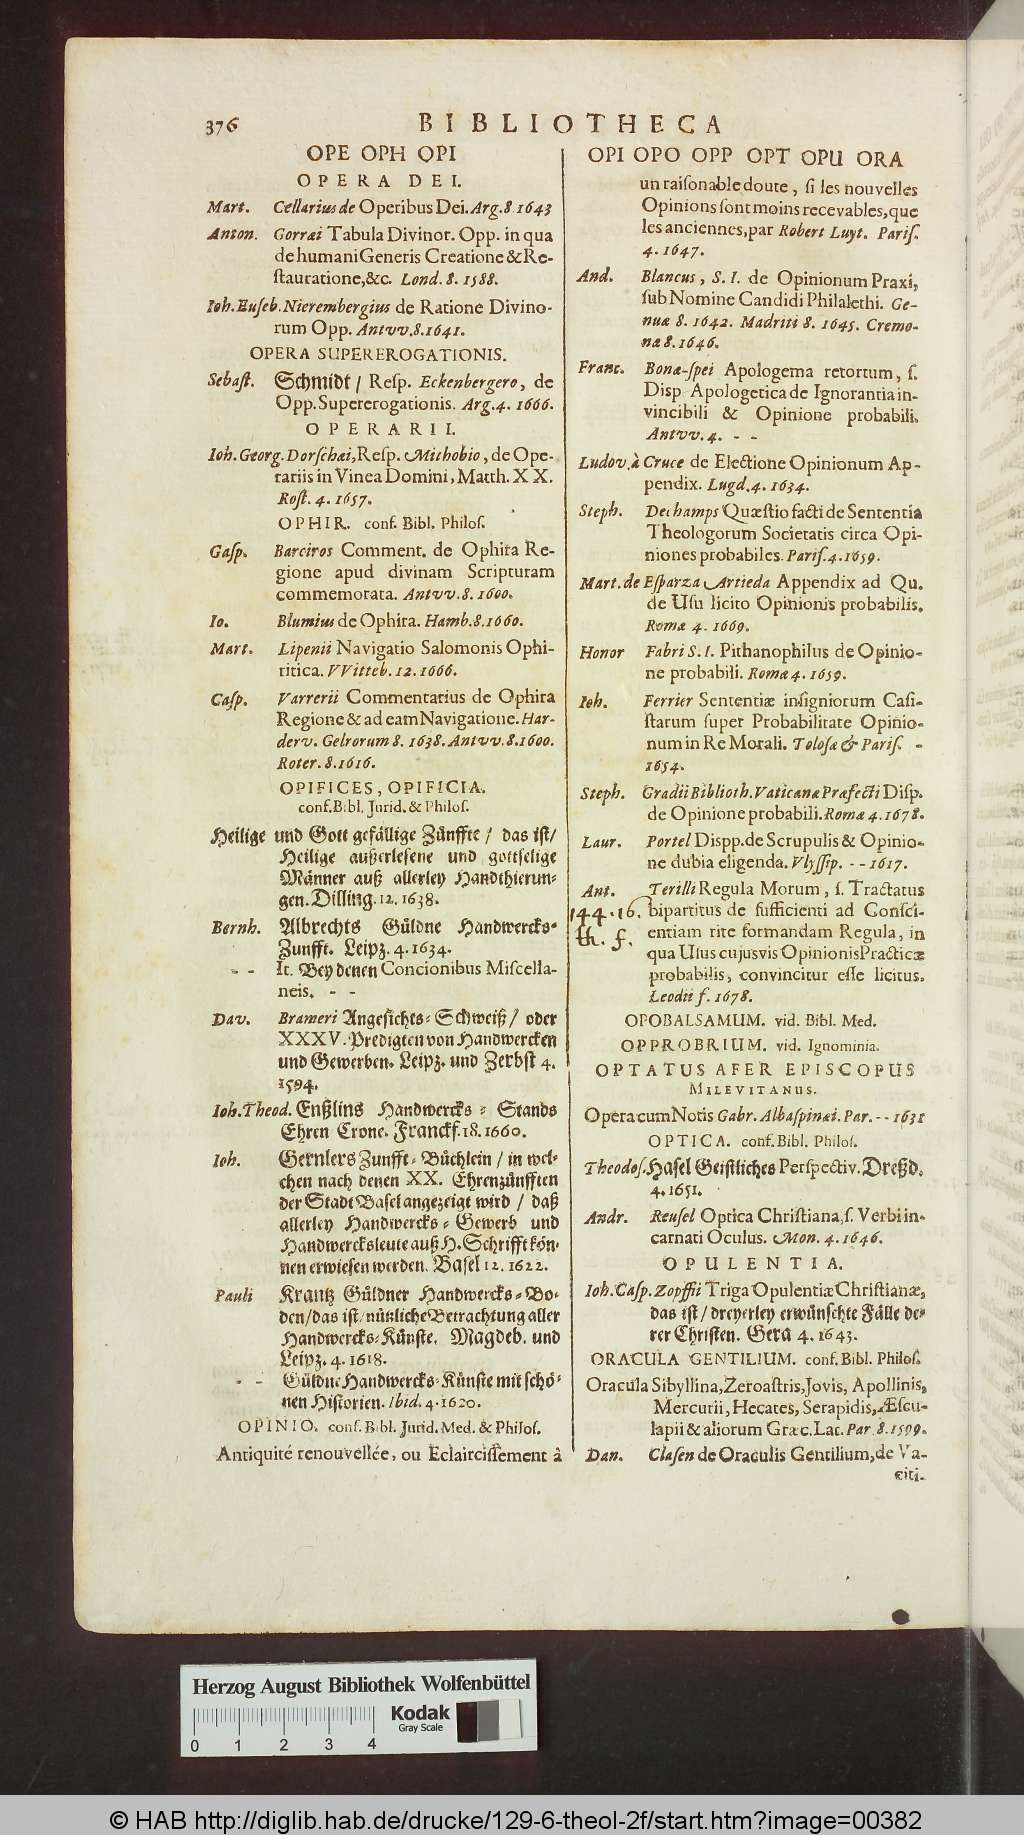 376
BIBLIOTHECA
OPE OPH OPI
OPERA DEI.
Mart. Cellarius de Operibus Dei. Arg. 8 1643
Anton. Gorræi Tabula Divinor. Opp. in qua
de humani Generis Creatione & Re-
stauratione, &c. Lond. 8. 1588.
Ioh. Euseb. Nierembergius de Ratione Divino-
rum Opp. Antvv. 8. 1641.
OPERA SUPEREROGATIONIS.
Sebast. Schmidt / Resp. Eckenbergero, de
Opp. Supererogationis. Arg. 4. 1666.
OPERARII.
Ioh. Georg. Dorschæi, Resp. Michobio, de Ope-
rariis in Vinea Domini, Matth. XX.
Rost. 4. 1657.
OPHIR. conf. Bibl. Philos.
Gasp. Barciros Comment. de Ophira Re-
gione apud divinam Scripturam
commemorata. Antvv. 8. 1600.
Io. Blumius de Ophira. Hamb. 8. 1660.
Mart. Lipenii Navigatio Salomonis Ophi-
ritica. VVitteb. 12. 1666.
Casp. Varrerii Commentarius de Ophira
Regione & ad eam Navigatione. Har-
derv. Gelrorum 8. 1638. Antvv. 8. 1600.
Roter. 8. 1616.
OPIFICES, OPIFICIA.
conf. Bibl. Jurid. & Philos.
Heilige und Gott gefällige Zünffte / das ist /
Heilige außerlesene und gottselige
Männer auß allerley Handthierun-
gen. Dilling. 12. 1638.
Bernh. Albrechts Güldne Handwercks-
Zunfft. Leipz. 4. 1634.
- - It. Bey denen Concionibus Miscella-
neis. - -
Dav. Brameri Angesichts-Schweiß / oder
XXXV. Predigten von Handwercken
und Gewerben. Leipz. und Zerbst 4.
1594.
Ioh. Theod. Enßlins Handwercks-Stands
Ehren Crone. Franckf. 18. 1660.
Ioh. Gernlers Zunfft-Büchlein / in wel-
chen nach denen XX. Ehrenzünfften
der Stadt Basel angezeigt wird / daß
allerley Handwercks-Gewerb und
Handwercksleute auß H. Schrifft kön-
nen erwiesen werden. Basel 12. 1622.
Pauli Krantz Güldner Handwercks-Bo-
den / das ist / nützliche Betrachtung aller
Handwercks-Künste. Magdeb. und
Leipz. 4. 1618.
- - Güldne Handwercks-Künste mit schö-
nen Historien. Ibid. 4. 1620.
OPINIO. conf. Bibl. Jurid. Med. & Philos.
Antiquité renouvellée, ou Eclaircissement à
OPI OPO OPP OPT OPU ORA
un raisonable doute, si les nouvelles
Opinions sont moins recevables, que
les anciennes, par Robert Luyt. Paris.
4. 1647.
And. Blancus, S. I. de Opinionum Praxi,
sub Nomine Candidi Philalethi. Ge-
nuæ 8. 1642. Madriti 8. 1645. Cremo-
næ 8. 1646.
Franc. Bonæ-spei Apologema retortum, s.
Disp Apologetica de Ignorantia in-
vincibili & Opinione probabili.
Antvv. 4. - -
Ludov. à Cruce de Electione Opinionum Ap-
pendix. Lugd. 4. 1634.
Steph. Dechamps Quæstio facti de Sententia
Theologorum Societatis circa Opi-
niones probabiles. Paris. 4. 1659.
Mart. de Esparza Artieda Appendix ad Qu.
de Usu licito Opinionis probabilis.
Romæ 4. 1669.
Honor Fabri S. I. Pithanophilus de Opinio-
ne probabili. Romæ 4. 1659.
Ioh. Ferrier Sententiæ insigniorum Casi-
starum super Probabilitate Opinio-
num in Re Morali. Tolosæ & Paris. -
1654.
Steph. Gradii Biblioth. Vaticanæ Præfecti Disp.
de Opinione probabili. Romæ 4. 1678.
Laur. Portel Dispp. de Scrupulis & Opinio-
ne dubia eligenda. Vlyssip. - - 1617.
Ant. Terilli Regula Morum, s. Tractatus
144. 16. bipartitus de sufficienti ad Consci-
th. f. entiam rite formandam Regula, in
qua Usus cujusvis Opinionis Practicæ
probabilis, convincitur esse licitus.
Leodii f. 1678.
OPOBALSAMUM. vid. Bibl. Med.
OPPROBRIUM. vid. Ignominia.
OPTATUS AFER EPISCOPUS
MILEVITANUS.
Opera cum Notis Gabr. Albaspinæi. Par. - - 1631
OPTICA. conf. Bibl. Philos.
Theodos. Hasel Geistliches Perspectiv. Dreßd.
4. 1651.
Andr. Reusel Optica Christiana, s. Verbi in-
carnati Oculus. Mon. 4. 1646.
OPULENTIA.
Ioh. Casp. Zopffii Triga Opulentiæ Christianæ,
das ist / dreyerley erwünschte Fälle de-
rer Christen. Gera 4. 1643.
ORACULA GENTILIUM. conf. Bibl. Philos.
Oracula Sibyllina, Zeroastris, Jovis, Apollinis,
Mercurii, Hecates, Serapidis, Æscu-
lapii & aliorum Græc. Lat. Par 8. 1599.
Dan. Clasen de Oraculis Gentilium, de Va-
citi-
Herzog August Bibliothek Wolfenbüttel
Kodak
Gray Scale
0 1 2 3 4
© HAB http://diglib.hab.de/drucke/129-6-theol-2f/start.htm?image=00382